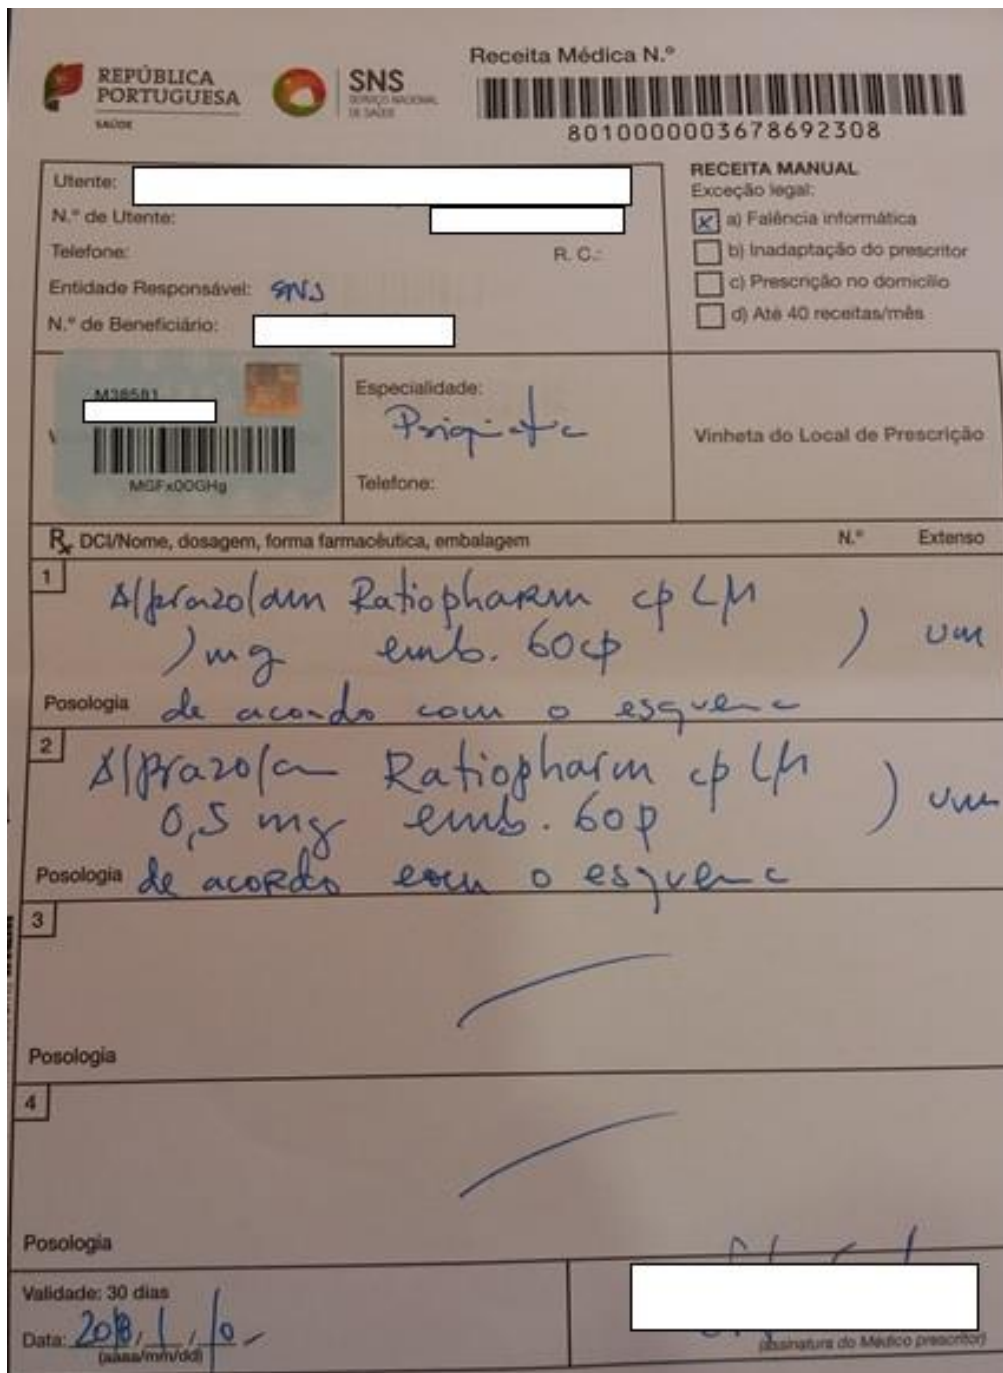 REPÚBLICA
PORTUGUESA
SAÚDE
SNS
SERVIÇO NACIONAL
DE SAÚDE
Receita Médica N.º
8010000003678692308
Utente:
N.º de Utente:
Telefone: R. C.:
Entidade Responsável: SNS
N.º de Beneficiário:
RECEITA MANUAL
Exceção legal:
x a) Falência informática
b) Inadaptação do prescritor
c) Prescrição no domicílio
d) Até 40 receitas/mês
M38581
MGFx00GHg
Especialidade:
Telefone:
Vinheta do Local de Prescrição
Rx DCI/Nome, dosagem, forma farmacêutica, embalagem N.º Extenso
1
Alprazolam Ratiopharm cp LM
1 mg emb. 60cp 1 um
Posologia de acordo com o esquema
2
Alprazolam Ratiopharm cp LM
0,5 mg emb. 60p 1 um
Posologia de acordo com o esquema
3
Posologia
4
Posologia
Validade: 30 dias
Data:
(aaaa/mm/dd)
(assinatura do Médico prescritor)